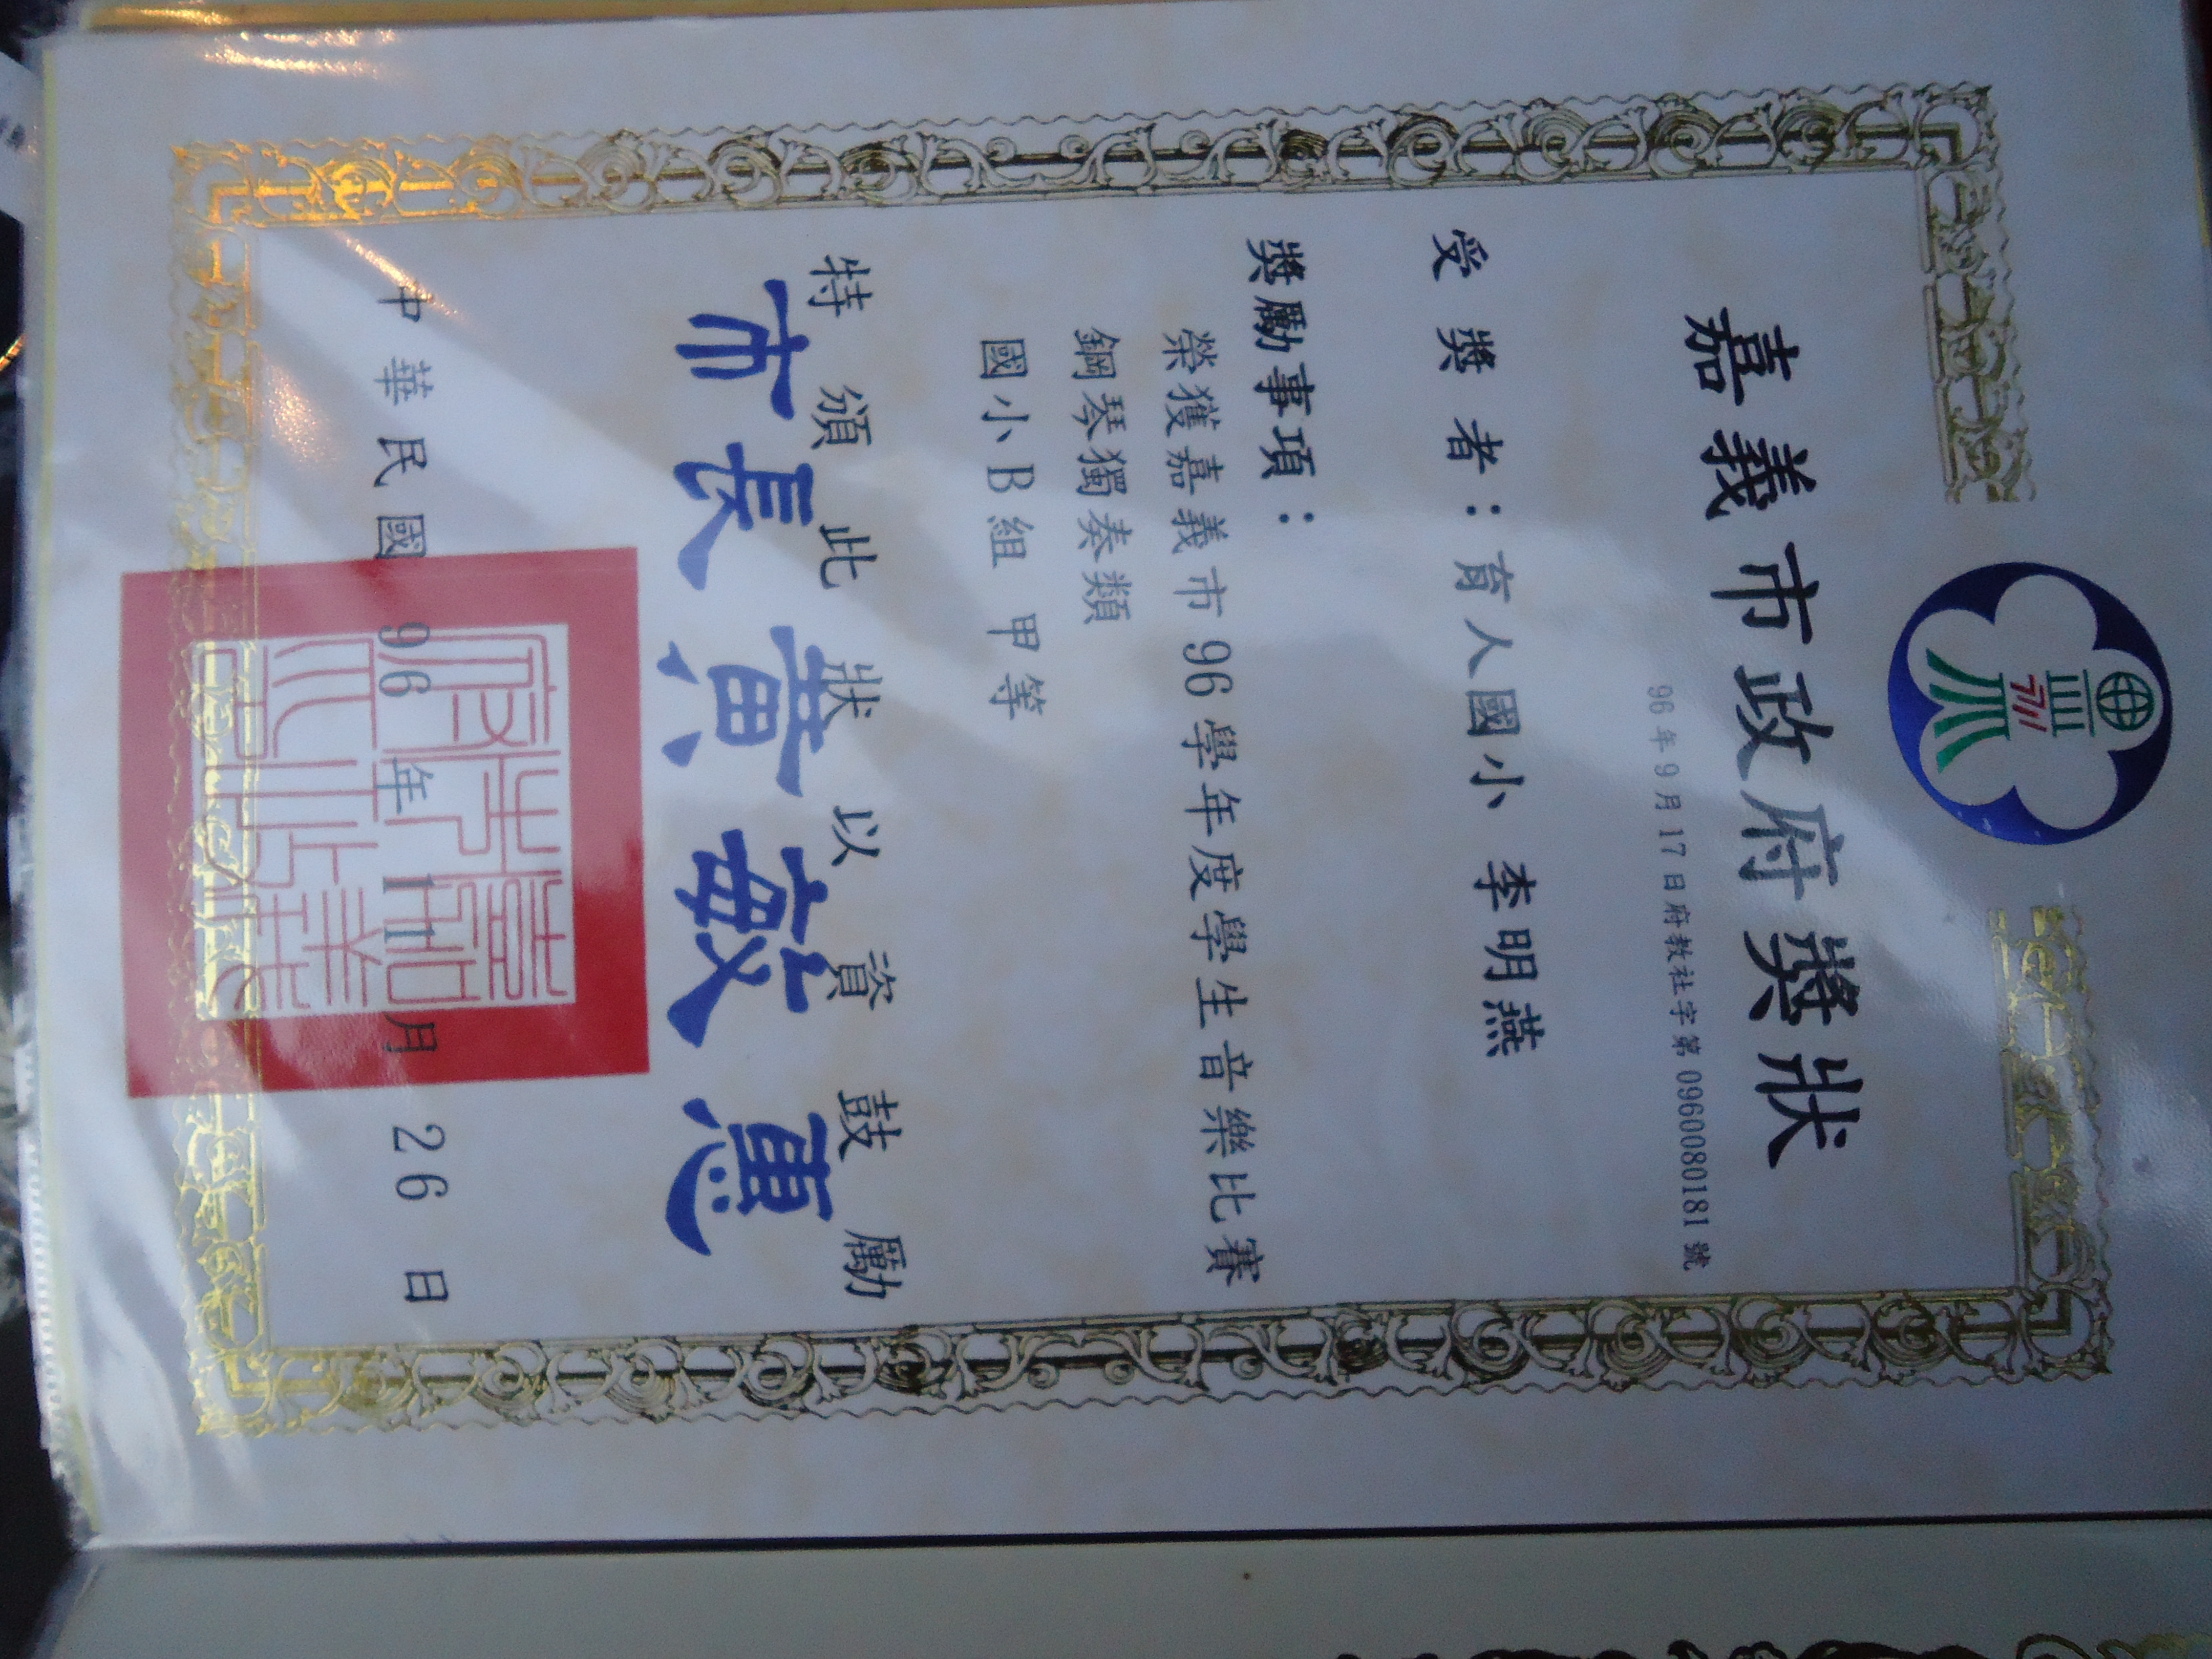 嘉義市政府獎狀
96年9月17日府教社字第0960080181號
受獎者：育人國小 李明燕
獎勵事項：
榮獲嘉義市96學年度學生音樂比賽
鋼琴獨奏類
國小B組 甲等
特頒此狀以資鼓勵
市長黃敏惠
中華民國96年11月26日